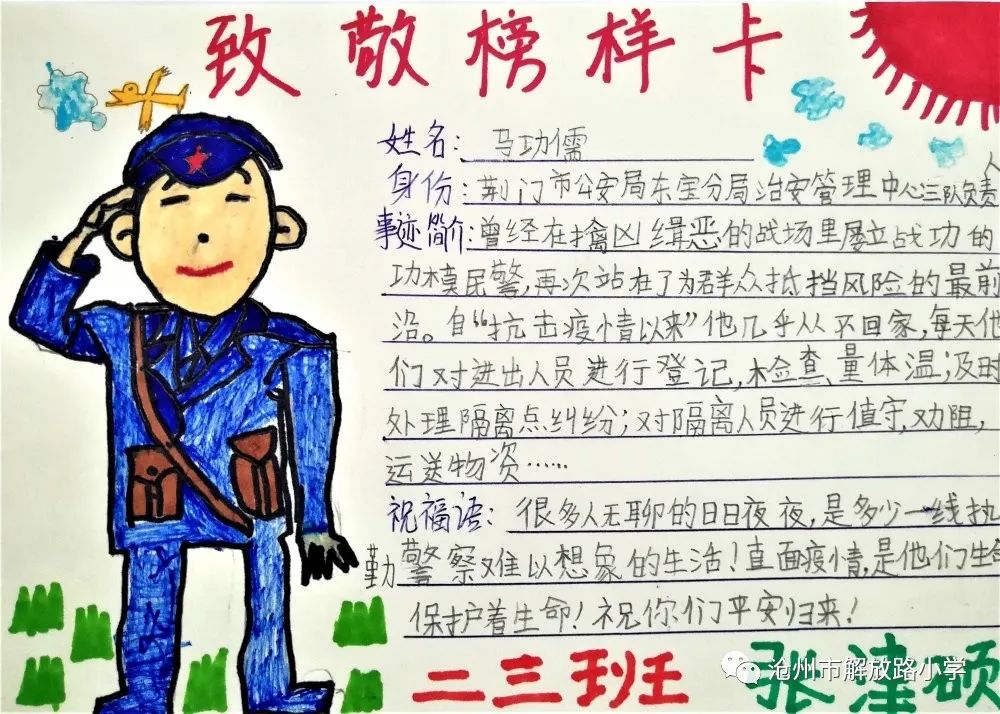 致敬榜样卡
姓名：马功儒
身份：荆门市公安局东宝分局治安管理中心三队负责人
事迹简介：曾经在擒凶缉恶的战场里屡立战功的
功模民警，再次站在了为群众抵挡风险的最前
沿。自“抗击疫情以来”他几乎从不回家，每天他
们对进出人员进行登记，检查、量体温；及时
处理隔离点纠纷；对隔离人员进行值守，劝阻，
运送物资……
祝福语：很多人无聊的日日夜夜，是多少一线执
勤警察难以想象的生活！直面疫情，是他们生命
保护着生命！祝你们平安归来！
二三班 张津硕
沧州市解放路小学